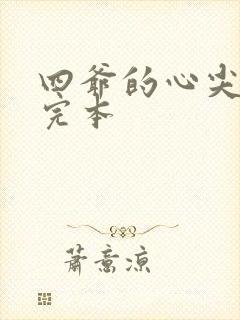 四爷的心尖
完本
萧意凉